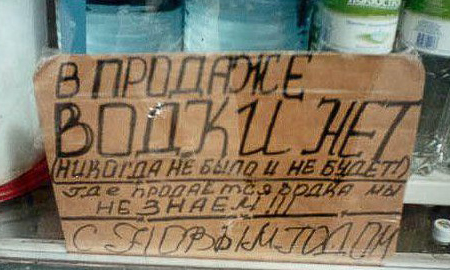 В ПРОДАЖЕ
ВОДКИ НЕТ
(НИКОГДА НЕ БЫЛО И НЕ БУДЕТ!)
где продаётся водка мы
НЕ ЗНАЕМ!!!
С НОВЫМ ГОДОМ